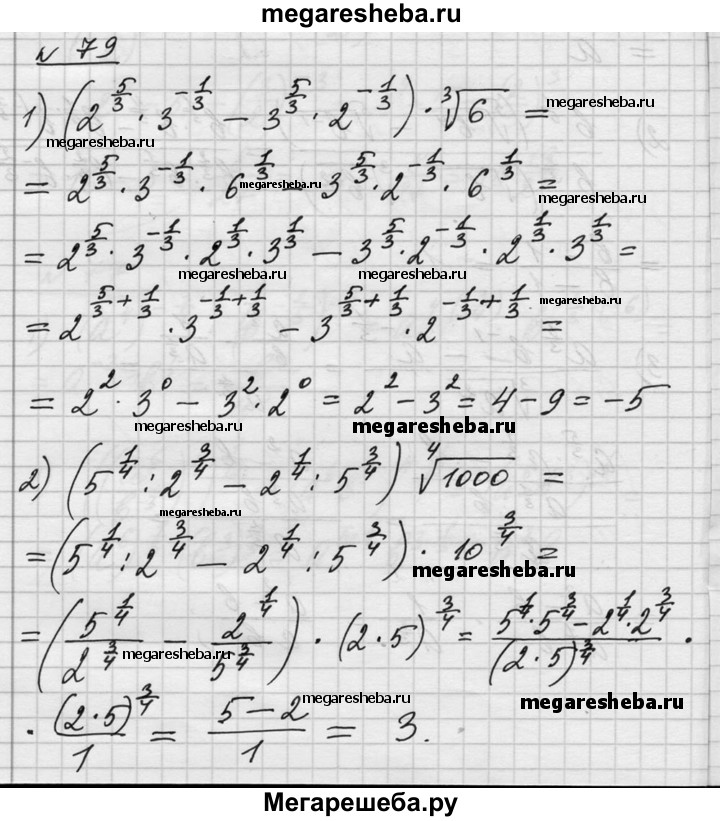 megaresheba.ru
№ 79
1) (2^{5/3} · 3^{-1/3} − 3^{5/3} · 2^{-1/3}) · ∛6 =
megaresheba.ru
megaresheba.ru
= 2^{5/3} · 3^{-1/3} · 6^{1/3} − 3^{5/3} · 2^{-1/3} · 6^{1/3} =
megaresheba.ru
megaresheba.ru
= 2^{5/3} · 3^{-1/3} · 2^{1/3} · 3^{1/3} − 3^{5/3} · 2^{-1/3} · 2^{1/3} · 3^{1/3} =
megaresheba.ru
megaresheba.ru
= 2^{5/3 + 1/3} · 3^{-1/3 + 1/3} − 3^{5/3 + 1/3} · 2^{-1/3 + 1/3} =
megaresheba.ru
megaresheba.ru
= 2^2 · 3^0 − 3^2 · 2^0 = 2^2 − 3^2 = 4 − 9 = −5
megaresheba.ru
megaresheba.ru
2) (5^{1/4} : 2^{3/4} − 2^{1/4} : 5^{3/4}) ∜1000 =
megaresheba.ru
= (5^{1/4} : 2^{3/4} − 2^{1/4} : 5^{3/4}) · 10^{3/4} =
megaresheba.ru
= (5^{1/4} / 2^{3/4} − 2^{1/4} / 5^{3/4}) · (2·5)^{3/4} = (5^{1/4} · 5^{3/4} − 2^{1/4} · 2^{3/4}) / (2·5)^{3/4} ·
megaresheba.ru
megaresheba.ru
· (2·5)^{3/4} / 1 = (5 − 2) / 1 = 3.
megaresheba.ru
megaresheba.ru
Мегарешеба.ру